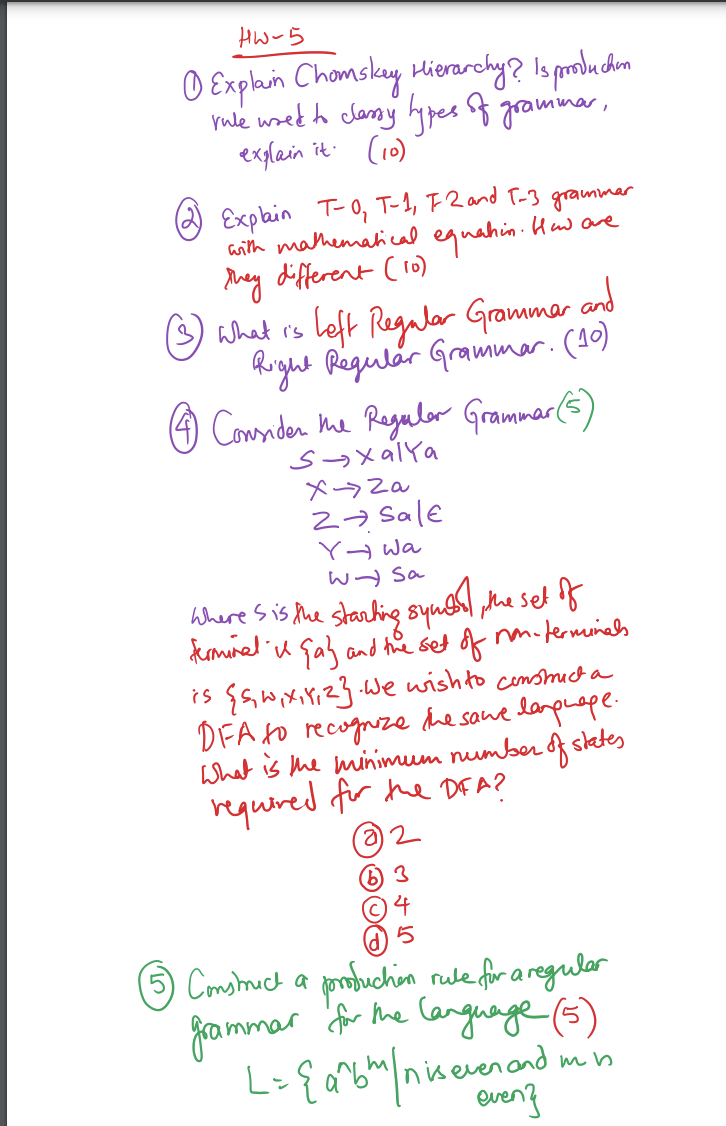 HW-5
① Explain Chomskey Hierarchy? Is production
rule used to classy types of grammar,
explain it. (10)
② Explain T-0, T-1, T-2 and T-3 grammar
with mathematical equation. How are
they different (10)
③ What is Left Regular Grammar and
Right Regular Grammar. (10)
④ Consider the Regular Grammar (5)
S → Xa|Ya
X → Za
Z → Sa|ϵ
Y → Wa
W → Sa
Where S is the starting symbol, the set of
terminal is {a} and the set of non-terminals
is {S,W,X,Y,Z}. We wish to construct a
DFA to recognize the same language.
What is the minimum number of states
required for the DFA?
ⓐ 2
ⓑ 3
ⓒ 4
ⓓ 5
⑤ Construct a production rule for a regular
grammar for the language (5)
L = {aⁿbᵐ|n is even and m is
even}